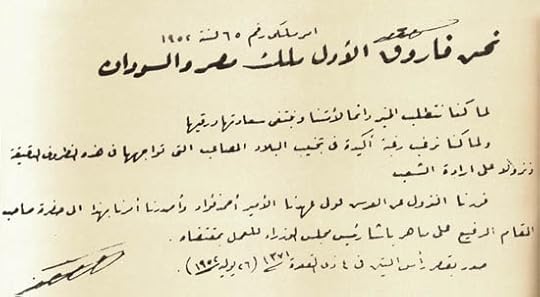 أمر ملكى رقم ٦٥ لسنة ١٩٥٢
نحن فاروق الأول ملك مصر والسودان
لما كنا نتطلب الخير دائما لأمتنا ونبتغى سعادتها ورقيها
ولما كنا نرغب رغبة أكيدة فى تجنيب البلاد المصاعب التى تواجهها فى هذه الظروف الدقيقة
ونزولا على إرادة الشعب
قررنا النزول عن العرش لولى عهدنا الأمير أحمد فؤاد وأصدرنا أمرنا بهذا إلى حضرة صاحب
المقام الرفيع على ماهر باشا رئيس مجلس الوزراء للعمل بمقتضاه .
صدر بقصر رأس التين فى ٤ ذى القعدة ١٣٧١ (٢٦ يوليه ١٩٥٢) .